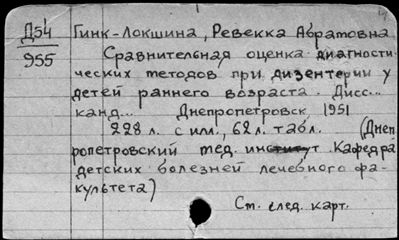 Д54 Гинк-Локшина, Ревекка Абратовна
955 Сравнительная оценка диагности-
ческих методов при дизентерии у
детей раннего возраста. Дисс...
канд... Днепропетровск, 1951
228 л. с илл., 62 л. табл. (Днеп
ропетровский мед. институт Кафедра
детских болезней лечебного фа-
культета)
См. след. карт.